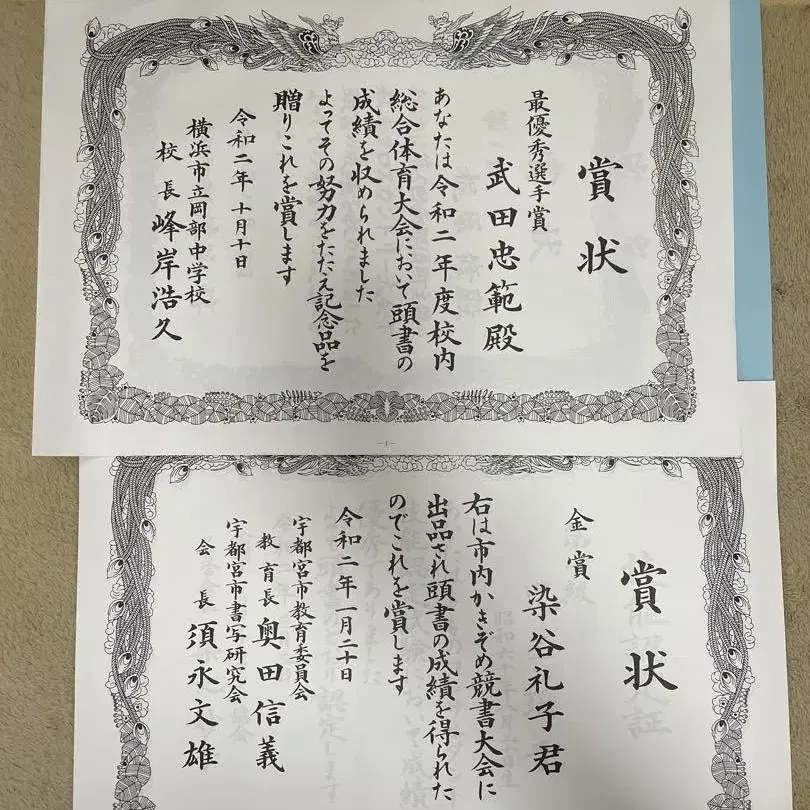 賞状
最優秀選手賞
武田忠範殿
あなたは令和二年度校内
総合体育大会において頭書の
成績を収められました
よってその努力をたたえ記念品を
贈りこれを賞します
令和二年十月十日
横浜市立岡部中学校
校長 峰岸浩久
―1―
賞状
金賞
染谷礼子君
右は市内かきぞめ競書大会に
出品され頭書の成績を得られた
のでこれを賞します
令和二年一月二十日
宇都宮市教育委員会
教育長 奥田信義
宇都宮市書写研究会
会長 須永文雄